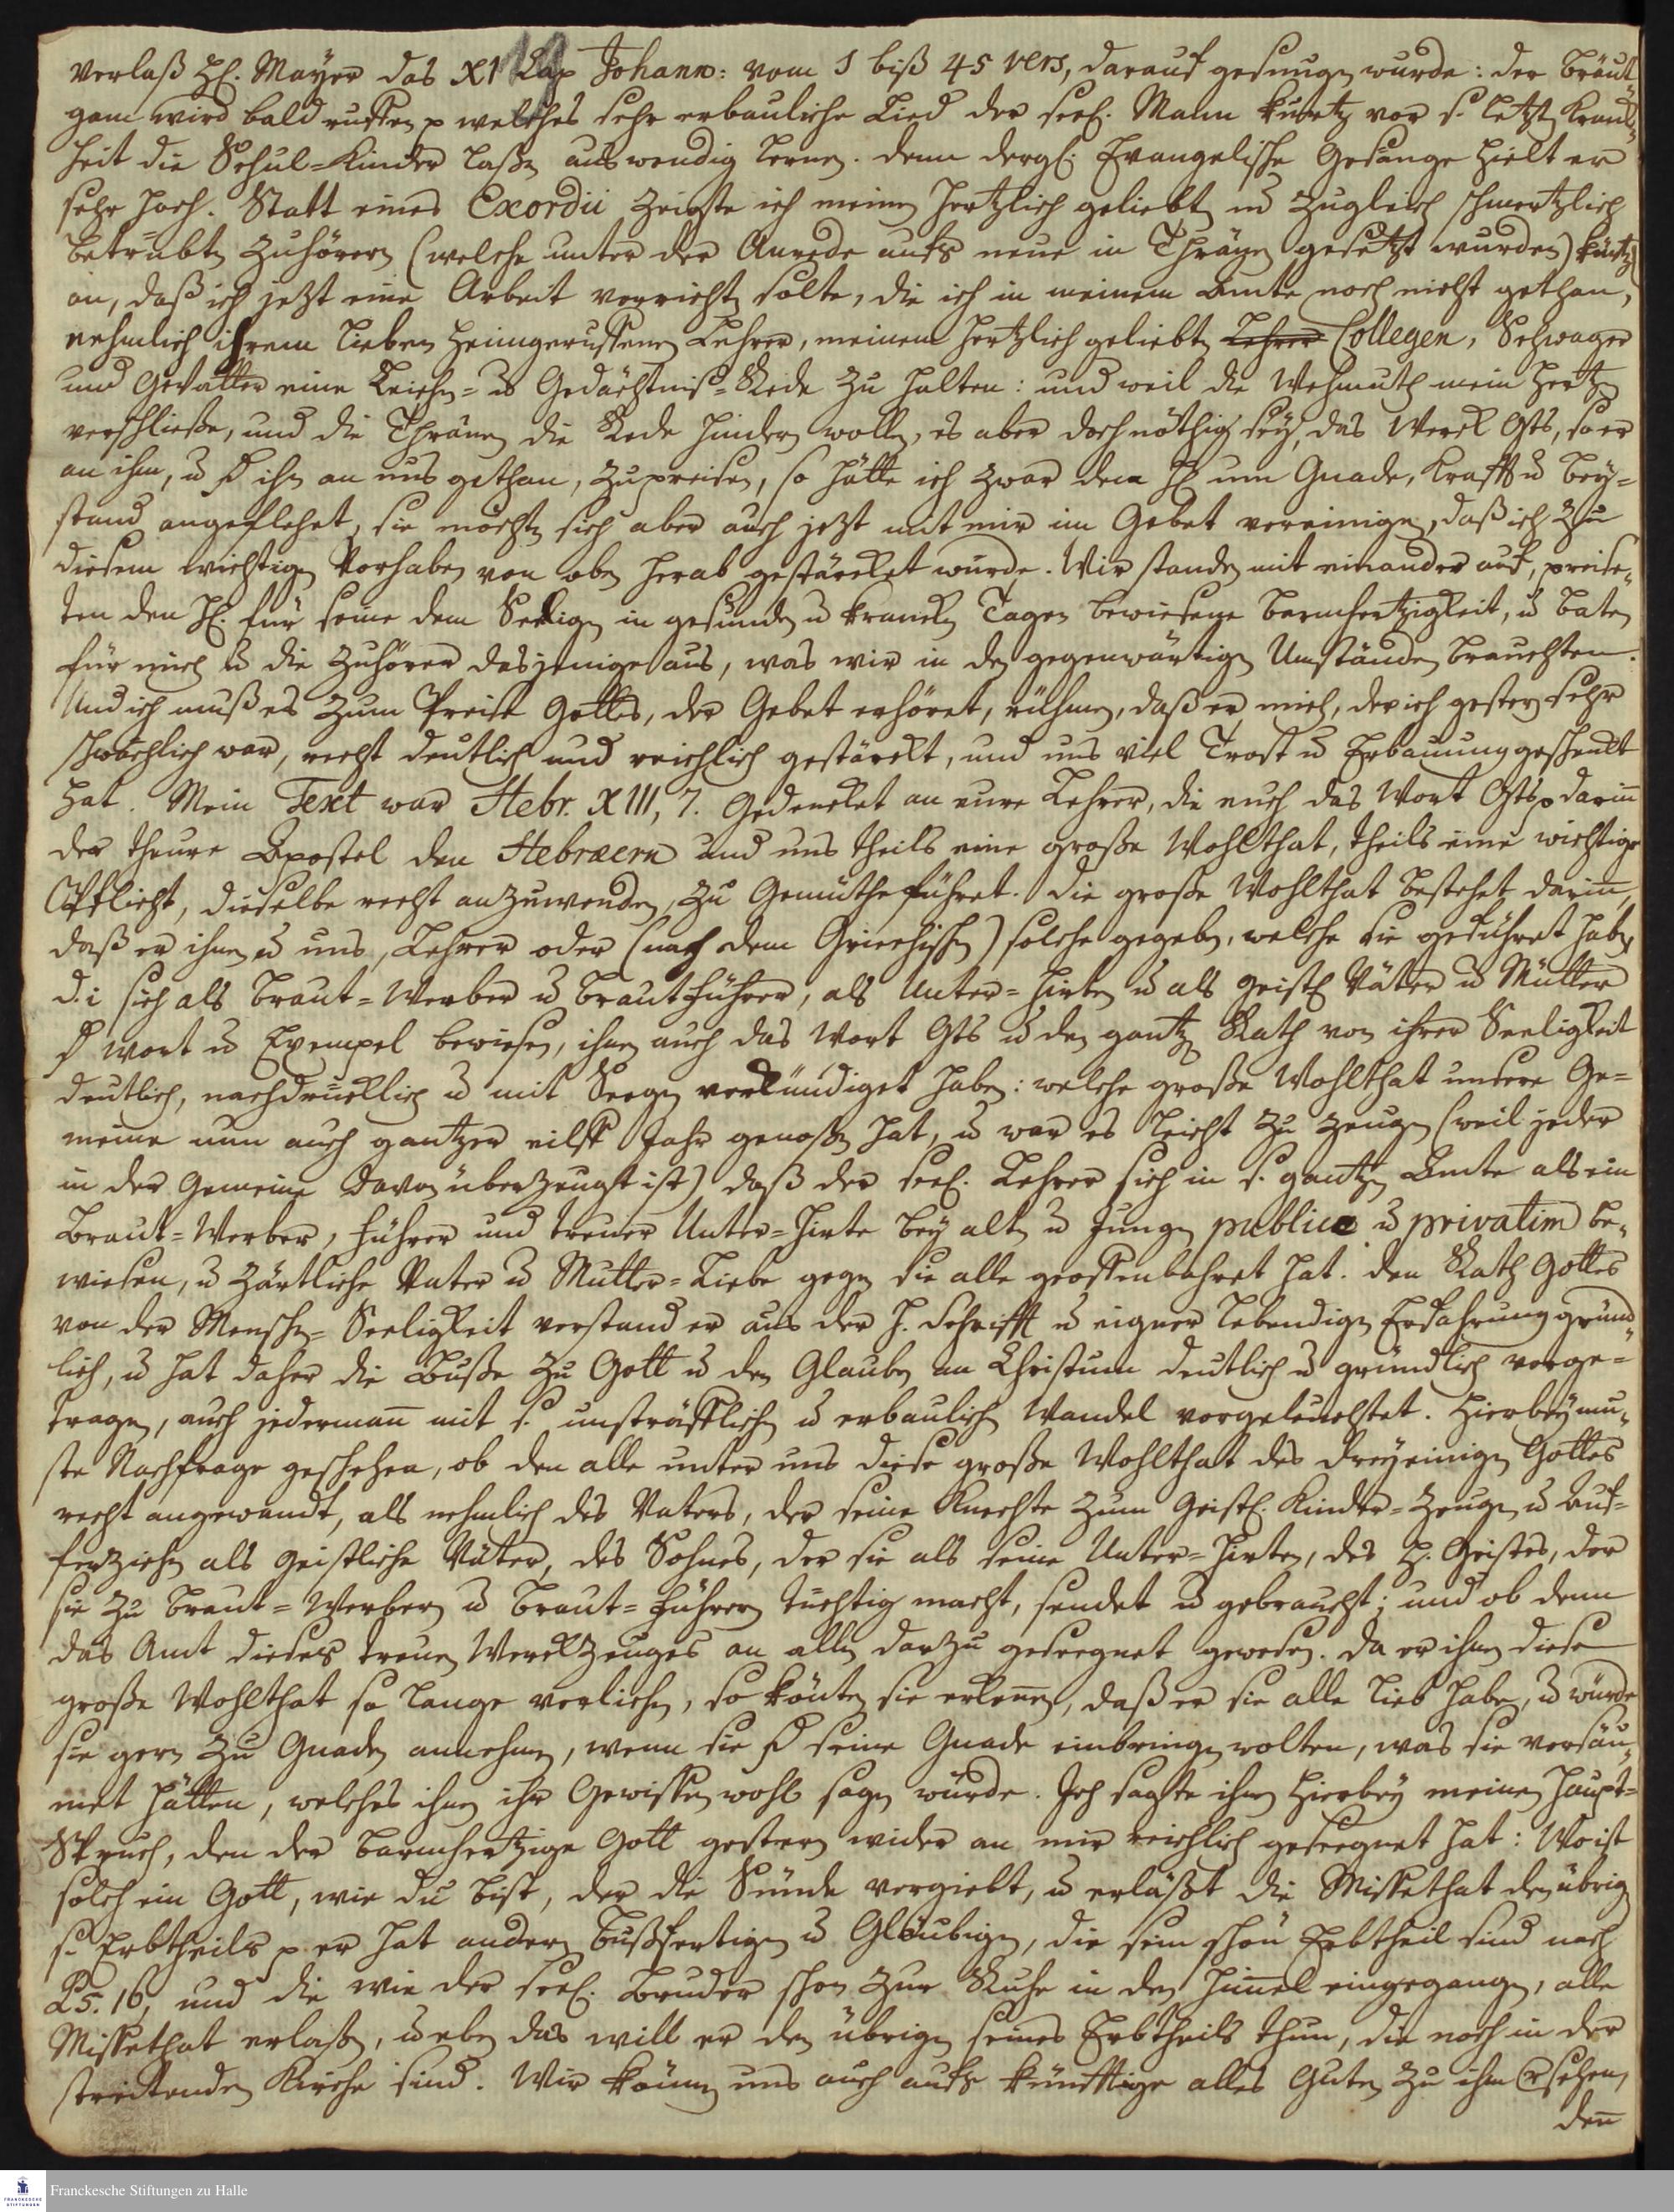 verlaß H. Mayer das XI Cap Johann: vom 1 biß 45 vers, darauf gesungen wurde: der Bräut„
gam wird bald ruffen p welches sehr erbauliche Lied der seel. Mann kurtz vor s. letzt Kranck„
heit die Schul-Kinder laßen auswendig lernen. denn dergl. Evangelische Gesänge hielt er
sehr hoch. Statt eines Exordii zeigte ich meinen hertzlich geliebten und zugleich schmertzlich
betrübten Zuhörern (welche unter der Anrede aufs neue in Thränen gesetzt wurden) kürtzl
an, daß ich jetzt eine Arbeit verrichten solte, die ich in meinem Amte noch nicht gethan,
nehmlich ihrem lieben heimgeruffenen Lehrer, meinem hertzlich geliebten Lehrer Collegen, Schwager
und Gevatter eine Leichen- u Gedächtniß-Rede zu halten: und weil die Wehmuth mein Hertz
verschließe, und die Thränen die Rede hindern wollen, es aber doch nöthig sey, das Werck Gts, so er
an ihm, u d ihn an uns gethan, zu preisen, so hätte ich zwar den H um Gnade, Krafft u Bey-
stand angeflehet, sie möchten sich aber auch jetzt mit mir im Gebet vereinigen, daß ich zu
diesem wichtigen Vorhaben von oben herab gestärcket würde. Wir stunden mit einander auf, preise„
ten den H. für seine dem Seeligen in gesunden u krancken Tagen bewiesene Barmhertzigkeit, u baten
für mich u die Zuhörer dasjenige aus, was wir in den gegenwärtigen Umständen brauchten.
Und ich muß es zum Preise Gottes, der Gebet erhöret, rühmen, daß er mich, der ich gestern sehr
schwächlich war, recht deutlich und reichlich gestärckt, und uns viel Trost u Erbauung geschenckt
hat. Mein Text war Hebr. XIII, 7. Gedencket an eure Lehrer, die euch das Wort Gts p darinn
der theure Apostel den Hebræern und uns theils eine große Wohlthat, theils eine wichtige
Pflicht, dieselbe recht anzuwenden, zu Gemüthe führet. die große Wohlthat bestehet darinn,
daß er ihnen u uns, Lehrer oder (nach dem Griechischen) solche gegeben, welche sie geführet haben,
d.i sich als Braut-Werber u Brautführer, als Unter-Hirten u als geistl Väter u Mütter
d Wort u Exempel bewiesen, ihnen auch das Wort Gts u den gantzen Rath von ihrer Seeligkeit
deutlich, nachdrücklich u mit Seegen verkündiget haben: welche große Wohlthat unsere Ge-
meine nun auch gantzer eilff Jahr genoßen hat, u war es leicht zu zeugen (weil jeder
in der Gemeine davon überzeugt ist) daß der seel. Lehrer sich in s. gantzen Amte als ein
Braut-Werber, führer und treuer Unter-Hirte bey alten u jungen publice u privatim be„
wiesen, u zärtliche Vater u Mutter-Liebe gegen sie alle geoffenbahret hat. den Rath Gottes
von der Menschen-Seeligkeit verstand er aus der H. Schrifft u eigner lebendigen Erfahrung gründ„
lich, u hat daher die Buße zu Gott u den Glauben an Christum deutlich u gründlich vorge-
tragen, auch jedermañ mit s. unsträfflichen u erbaulichen Wandel vorgeleuchtet. Hierbey mu„
ste Nachfrage geschehen, ob den alle unter uns diese große Wohlthat des dreyeinigen Gottes
recht angewandt, als nehmlich des Vaters, der seine Knechte zum geistl. Kinder-Zeugen u Auf-
erziehen als geistliche Väter, des Sohnes, der sie als seine Unter-Hirten, des H. Geistes, der
sie zu Braut-Werbern u Braut-Führern tüchtig macht, sendet u gebraucht; und ob denn
das Amt dieses treuen Werckzeuges an allen darzu geseegnet gewesen. da er ihnen diese
große Wohlthat so lange verliehen, so könten sie erkeñen, daß er sie alle lieb habe, u würde
sie gern zu Gnaden annehmen, wenn sie d seine Gnade einbringen wolten, was sie versäu„
met hätten, welches ihnen ihr Gewissen wohl sagen würde. Ich sagte ihnen hierbey meinen Haupt-
Spruch, den der barmhertzige Gott gestern wider an mir reichlich geseegnet hat: Wo ist
solch ein Gott, wie du bist, der die Sünde vergiebt, u erläßt die Missethat den übrigen
s. Erbtheils p er hat andern Bußfertigen u Gläubigen, die sein schön Erbtheil sind nach
Ps. 16, und die wie der seel. Bruder schon zur Ruhe in den Himel eingegangen, alle
Missethat erlaßen, u eben das will er den übrigen seines Erbtheils thun, die noch in der
streitenden Kirche sind. Wir könen uns auch aufs künfftige alles Guten zu ihm versehen,
deñ
Franckesche Stiftungen zu Halle